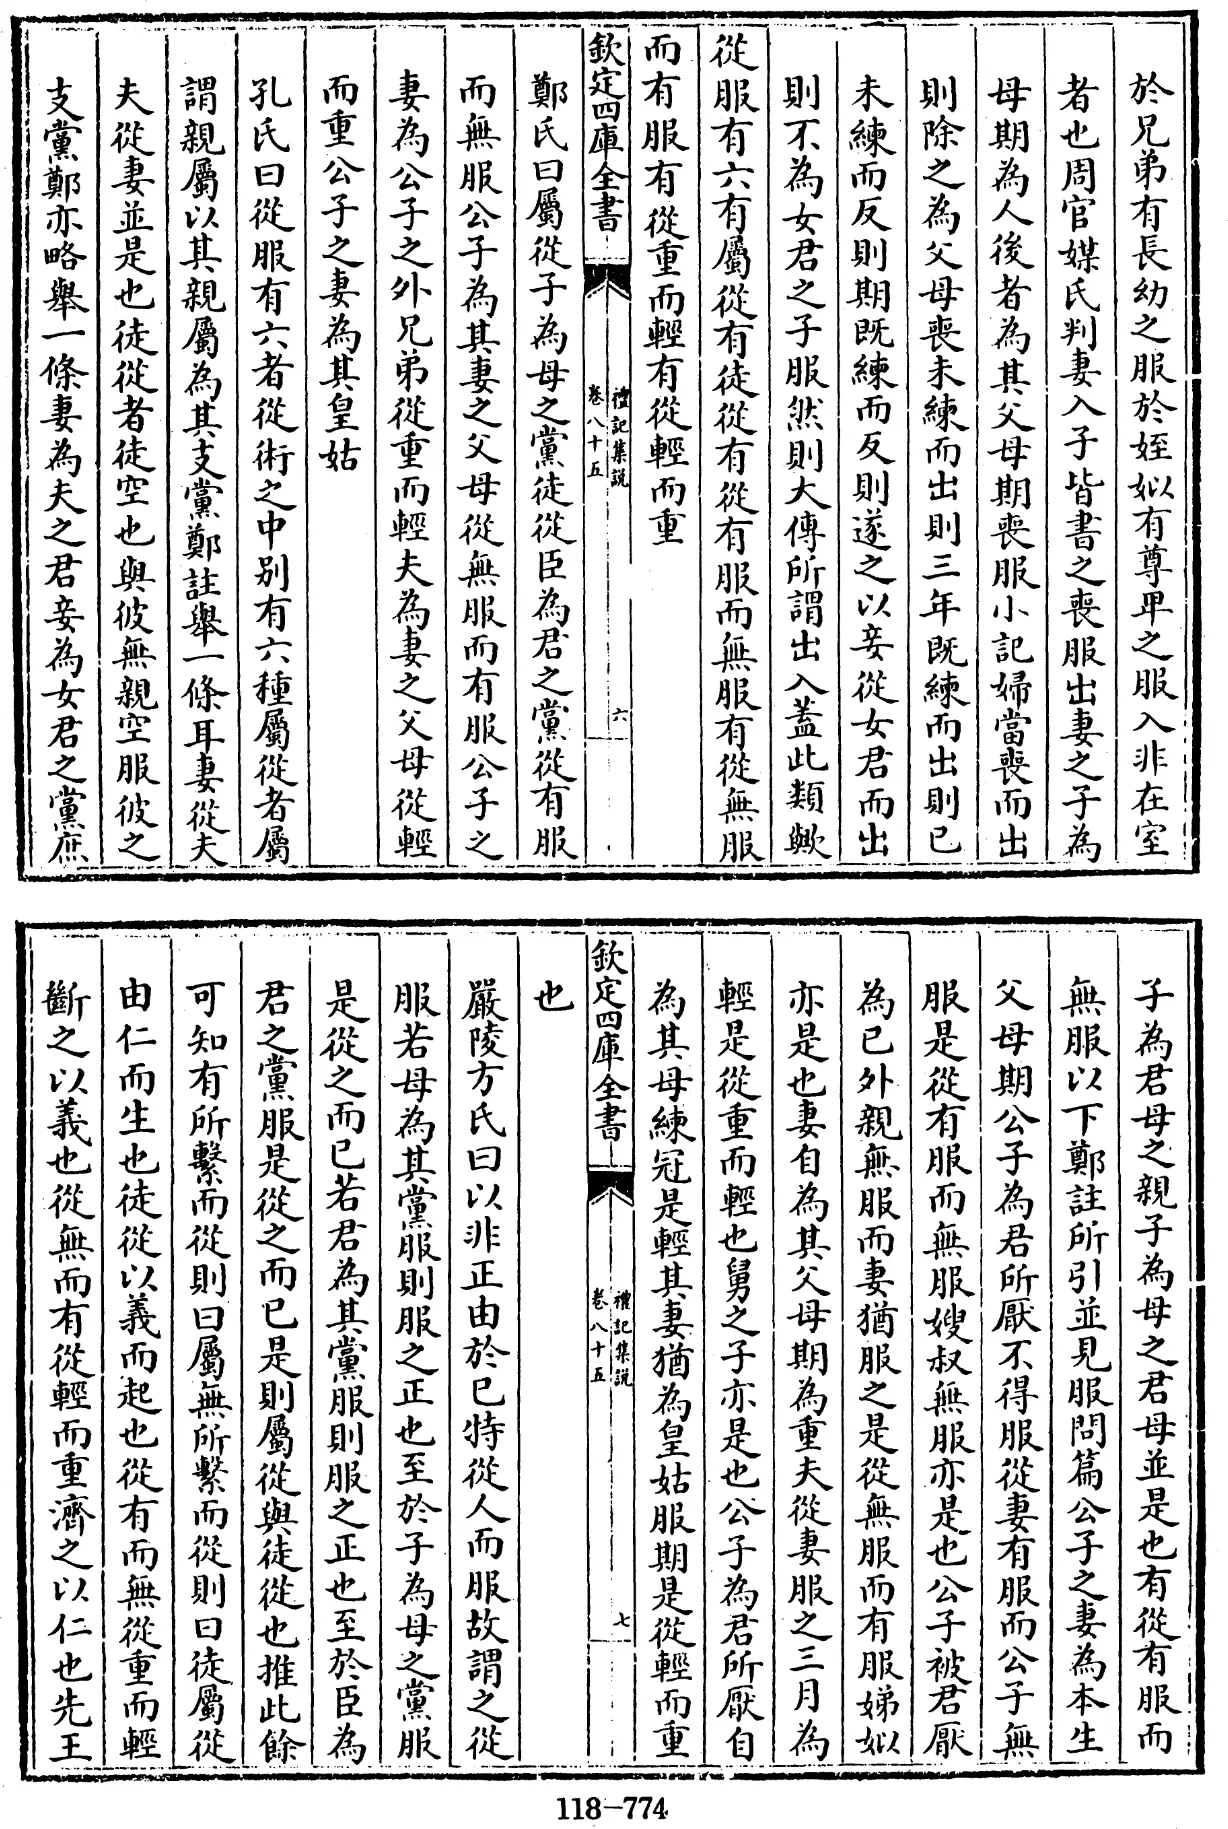 於兄弟有長幼之服於姪姒有尊卑之服入非在室
者也周官媒氏判妻入子皆書之喪服出妻之子為
母期為人後者為其父母期喪服小記婦當喪而出
則除之為父母喪未練而出則三年既練而出則已
未練而反則期既練而反則遂之以妾從女君而出
則不為女君之子服然則大傳所謂出入蓋此類歟
從服有六有屬從有徒從有從有服而無服有從無服
而有服有從重而輕有從輕而重
欽定四庫全書
禮記集說
卷八十五
六
鄭氏曰屬從子為母之黨徒從臣為君之黨從有服
而無服公子為其妻之父母從無服而有服公子之
妻為公子之外兄弟從重而輕夫為妻之父母從輕
而重公子之妻為其皇姑
孔氏曰從服有六者從術之中別有六種屬從者屬
謂親屬以其親屬為其支黨鄭註舉一條耳妻從夫
夫從妻並是也徒從者徒空也與彼無親空服彼之
支黨鄭亦略舉一條妻為夫之君妾為女君之黨庶
子為君母之親子為母之君母並是也有從有服而
無服以下鄭註所引並見服問篇公子之妻為本生
父母期公子為君所厭不得服從妻有服而公子無
服是從有服而無服嫂叔無服亦是也公子被君厭
為已外親無服而妻猶服之是從無服而有服娣姒
亦是也妻自為其父母期為重夫從妻服之三月為
輕是從重而輕也舅之子亦是也公子為君所厭自
為其母練冠是輕其妻猶為皇姑服期是從輕而重
欽定四庫全書
禮記集說
卷八十五
七
也
嚴陵方氏曰以非正由於已特從人而服故謂之從
服若母為其黨服則服之正也至於子為母之黨服
是從之而已若君為其黨服則服之正也至於臣為
君之黨服是從之而已是則屬從與徒從也推此餘
可知有所繫而從則曰屬無所繫而從則曰徒屬從
由仁而生也徒從以義而起也從有而無從重而輕
斷之以義也從無而有從輕而重濟之以仁也先王
118-774